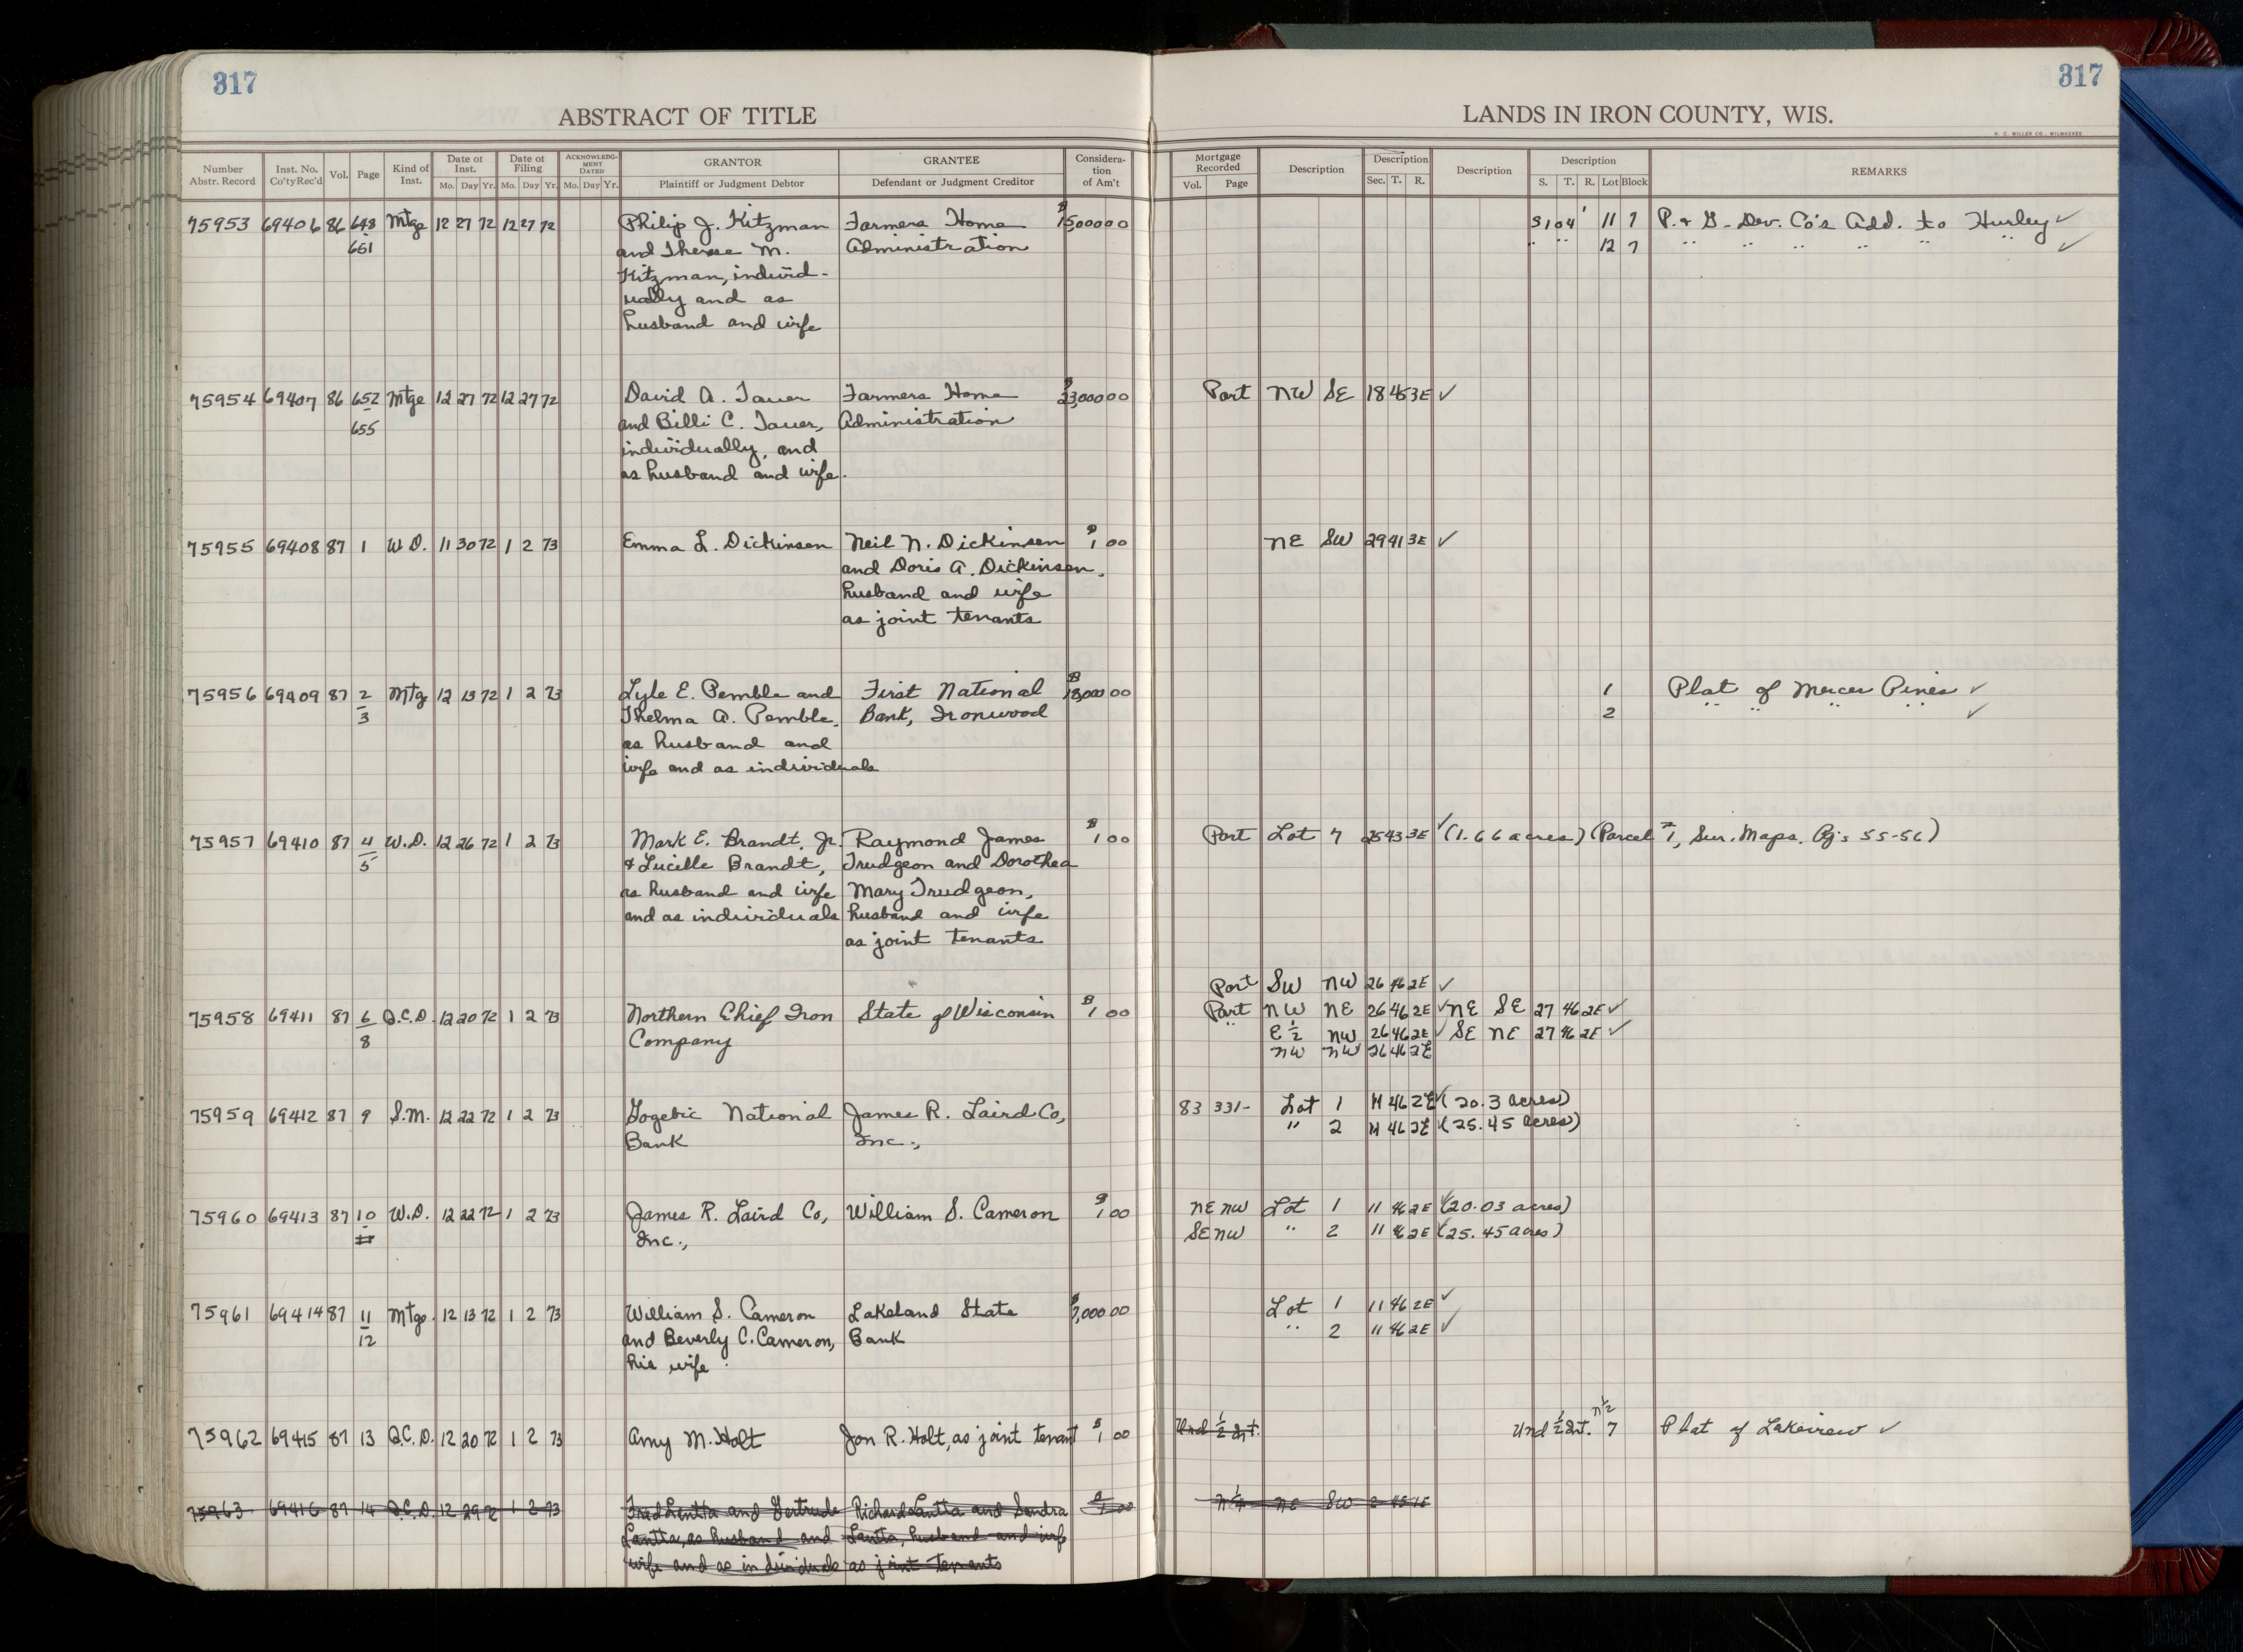 317
317
ABSTRACT OF TITLE
LANDS IN IRON COUNTY, WIS.
H. C. MILLER CO., MILWAUKEE
Number Abstr. Record | Inst. No. Co'ty Rec'd | Vol. | Page | Kind of Inst. | Date of Inst. Mo. Day Yr. | Date of Filing Mo. Day Yr. | ACKNOWLEDGMENT DATED Mo. Day Yr. | GRANTOR Plaintiff or Judgment Debtor | GRANTEE Defendant or Judgment Creditor | Considera- tion of Am't | Mortgage Recorded Vol. Page | Description | Description Sec. T. R. | Description | Description S. T. R. Lot Block | REMARKS
75953 69406 86 648 Mtge 12 27 72 12 27 72 Philip J. Kitzman Farmers Home $15,000 00 S104' 11 7 P. & G. Dev. Co's Add. to Hurley ✓
651 and Therese M. Administration " " 12 7 " " " " " " ✓
Kitzman, individ-
ually and as
husband and wife
75954 69407 86 652 Mtge 12 27 72 12 27 72 David A. Tauer Farmers Home $23,000 00 Part NW SE 18 45 3E ✓
655 and Billi C. Tauer, Administration
individually, and
as husband and wife.
75955 69408 87 1 W.D. 11 30 72 1 2 73 Emma L. Dickinsen Neil N. Dickinsen $1 00 NE SW 29 41 3E ✓
and Doris A. Dickinsen,
husband and wife
as joint tenants
75956 69409 87 2 Mtg 12 13 72 1 2 73 Lyle E. Pemble and First National $18,000 00 1 Plat of Mercer Pines ✓
3 Thelma A. Pemble, Bank, Ironwood 2 " " " " ✓
as husband and
wife and as individuals
75957 69410 87 4 W.D. 12 26 72 1 2 73 Mark E. Brandt, Jr. Raymond James $1 00 Part Lot 7 25 43 3E ✓ (1.66 acres) (Parcel #1, Sur. Maps. Pgs 55-56)
5 & Lucille Brandt, Trudgeon and Dorothea
as husband and wife Mary Trudgeon,
and as individuals husband and wife
as joint tenants
Part SW NW 26 46 2E ✓
75958 69411 87 6 Q.C.D. 12 20 72 1 2 73 Northern Chief Iron State of Wisconsin $1 00 Part NW NE 26 46 2E ✓ NE SE 27 46 2E ✓
8 Company " E ½ NW 26 46 2E ✓ SE NE 27 46 2E ✓
NW NW 26 46 2E
75959 69412 87 9 S.M. 12 22 72 1 2 73 Gogebic National James R. Laird Co, 83 331- Lot 1 11 46 2E ✓ (20.3 acres)
Bank Inc., " 2 11 46 2E ✓ (25.45 acres)
75960 69413 87 10 W.D. 12 22 72 1 2 73 James R. Laird Co, William S. Cameron $1 00 NE NW Lot 1 11 46 2E ✓ (20.03 acres)
11 Inc., SE NW " 2 11 46 2E ✓ (25.45 acres)
75961 69414 87 11 Mtge. 12 13 72 1 2 73 William S. Cameron Lakeland State $7,000 00 Lot 1 11 46 2E ✓
12 and Beverly C. Cameron, Bank " 2 11 46 2E ✓
his wife
75962 69415 87 13 Q.C.D. 12 20 72 1 2 73 Amy M. Holt Jon R. Holt, as joint tenant $1 00 Und ½ Int. Und ½ Int. N½ 7 Plat of Lakeview ✓
75963 69416 87 14 Q.C.D. 12 29 72 1 2 73 Fred Lantta and Gertrude Richard Lantta and Sandra $1 00 NE SW 2 45 1E
Lantta, as husband and Lantta, husband and wife
wife and as individuals as joint tenants